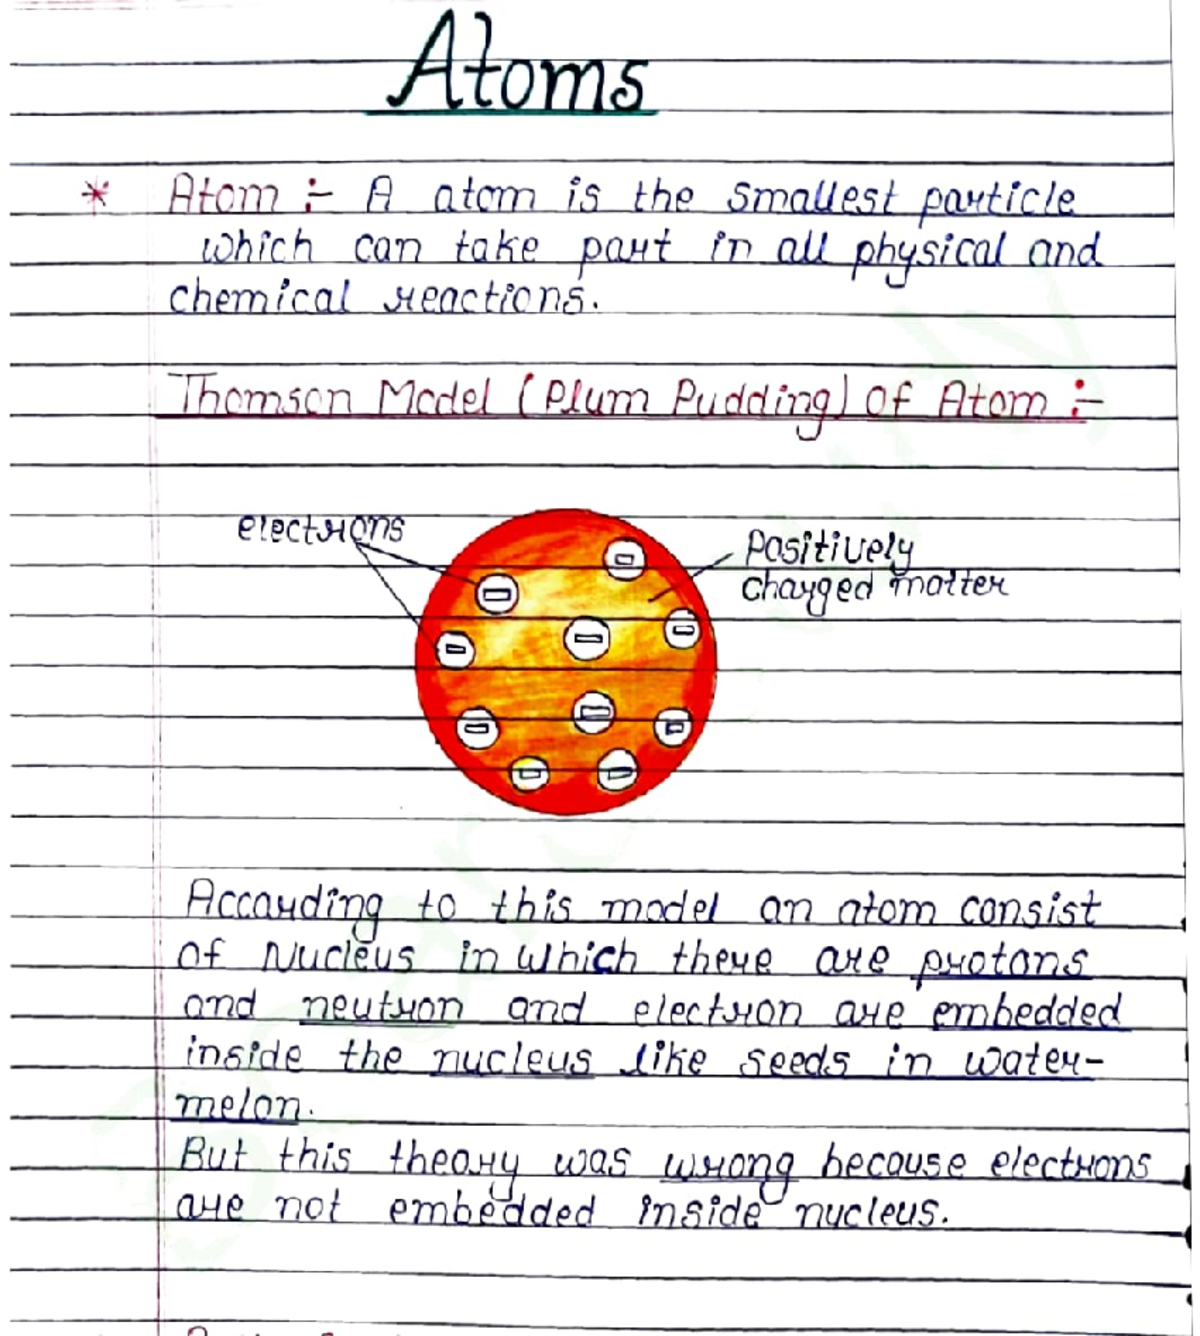 Atoms
* Atom :- A atom is the smallest particle
which can take part in all physical and
chemical reactions.
Thomson Model (Plum Pudding) Of Atom :-
electrons
Positively
charged matter
According to this model an atom consist
of Nucleus in which there are protons
and neutron and electron are embedded
inside the nucleus like seeds in water-
melon.
But this theory was wrong because electrons
are not embedded inside nucleus.